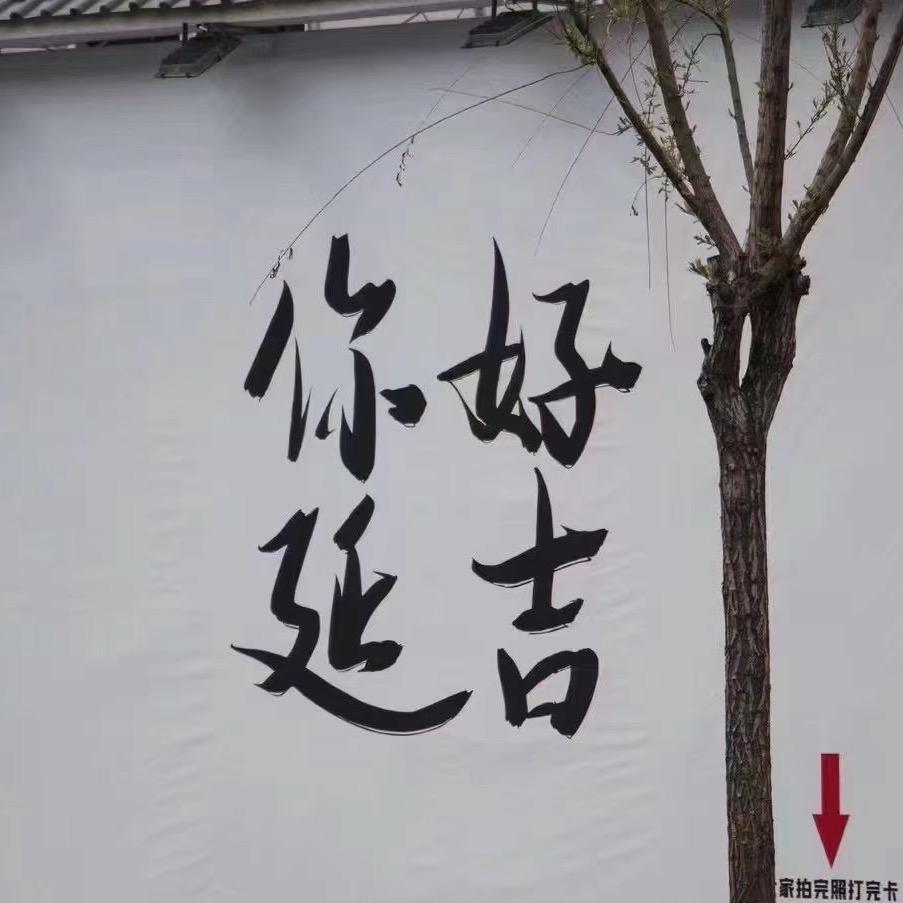 你好
延吉
家拍完照打完卡